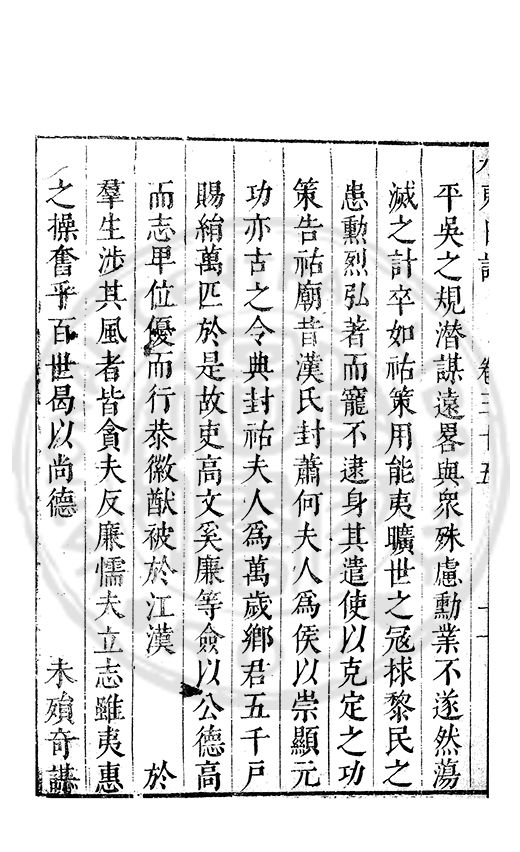 水東日記 卷三十五
平吳之規潛謀遠畧與衆殊慮勳業不遂然蕩
滅之計卒如祜策用能夷曠世之冦拯黎民之
患勳烈弘著而寵不逮身其遣使以克定之功
策告祜廟昔漢氏封蕭何夫人爲侯以崇顯元
功亦古之令典封祜夫人爲萬歲鄉君五千戸
賜絹萬匹於是故吏高文奚廉等僉以公德高
而志卑位優而行恭徽猷被於江漢 於
羣生涉其風者皆貪夫反廉懦夫立志雖夷惠
之操奮乎百世曷以尚德 未殞奇謀